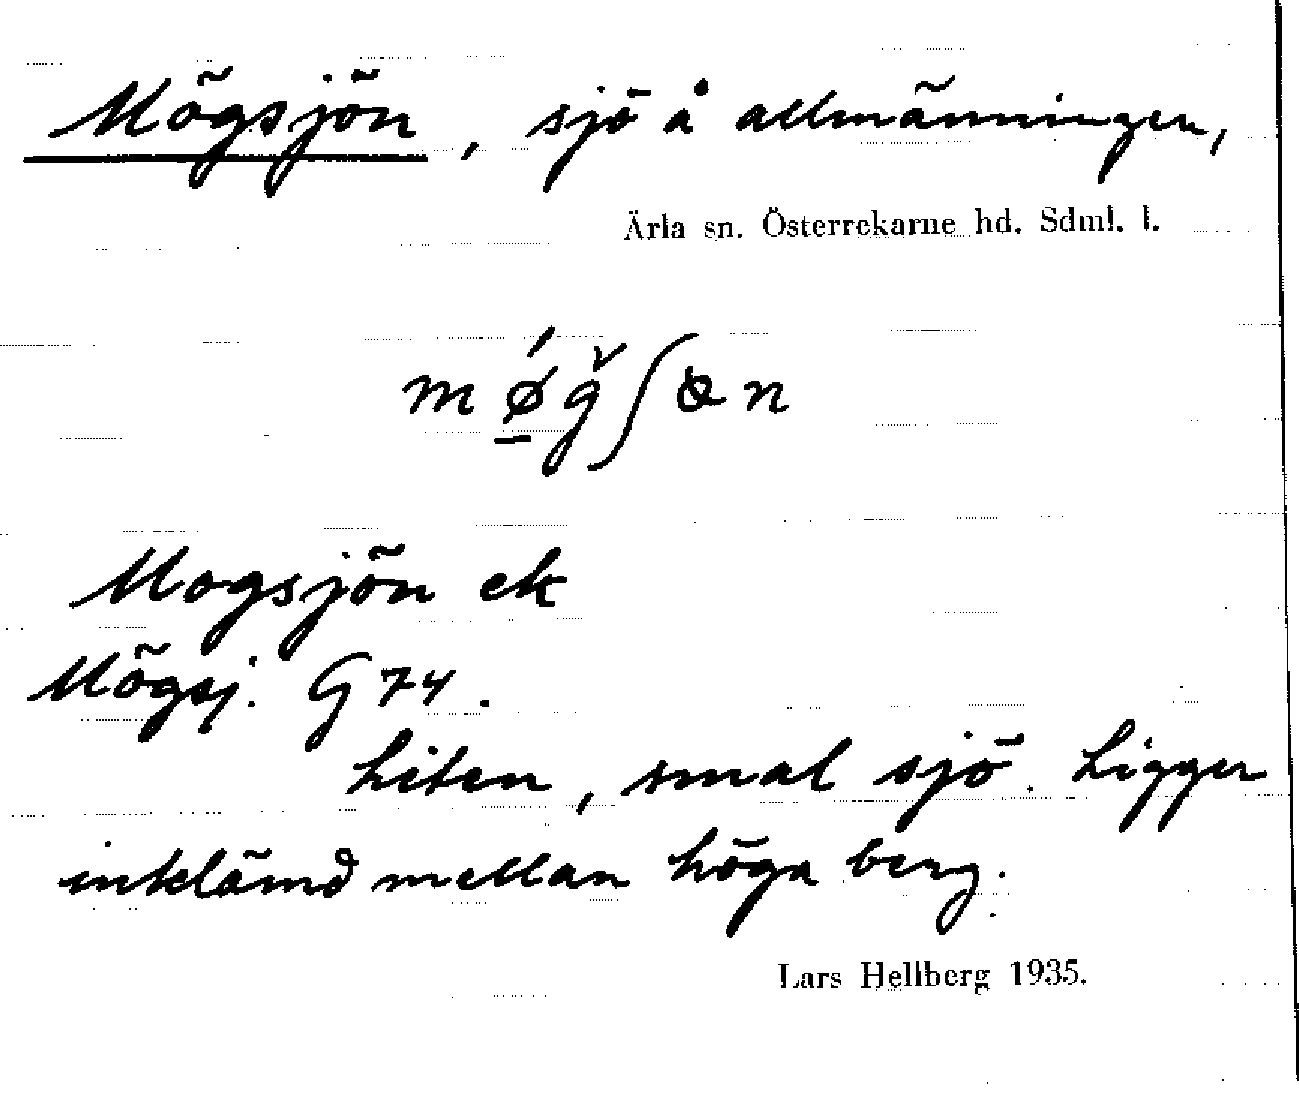 Mögsjön, sjö å allmänningen,
Ärla sn. Österrekarne hd. Sdml. l.
mǿ̱ǧʃꝍn
Mogsjön ek
Mögsj. G 74.
Liten, smal sjö. Ligger
inklämd mellan höga berg.
Lars Hellberg 1935.